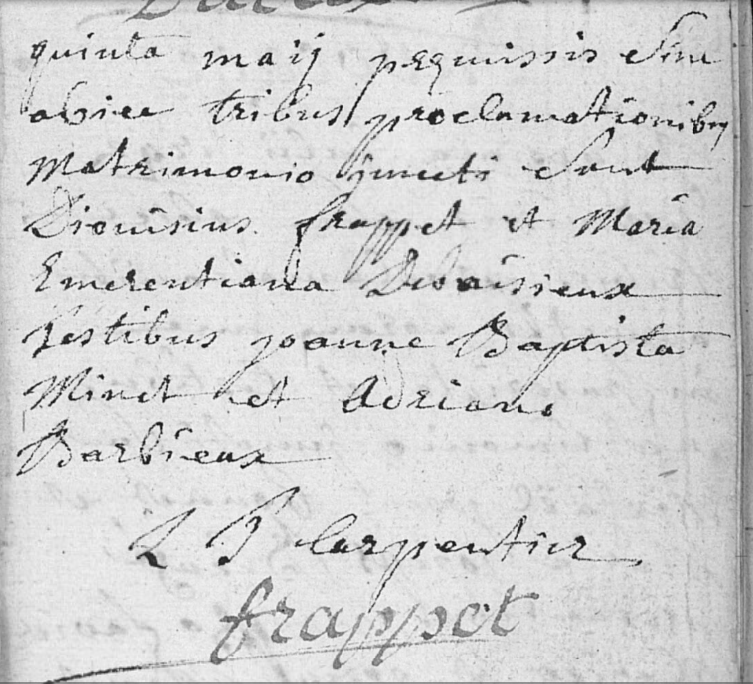 quinta maij
tribus proclamationibus
matrimonio juncti sunt
Dionisius frappet et Maria
Emerentiana Debaisieux
testibus joanne Baptista
Minet et Adriano
Barbieux
L B Carpentier
frappet